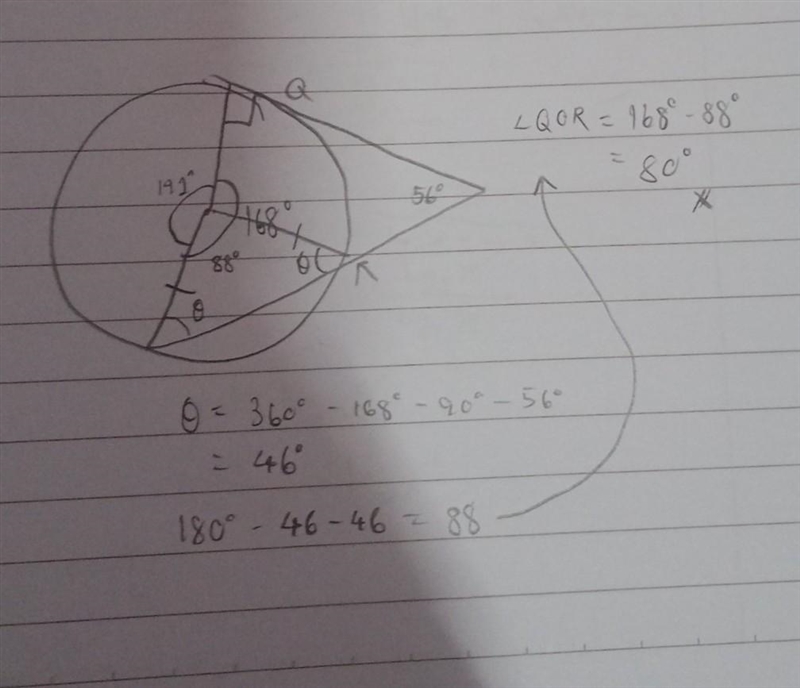 Q
∠QOR = 168° - 88°
= 80°
192°
168°
56°
88°
θ
R
θ
θ = 360° - 168° - 90° - 56°
= 46°
180° - 46 - 46 = 88